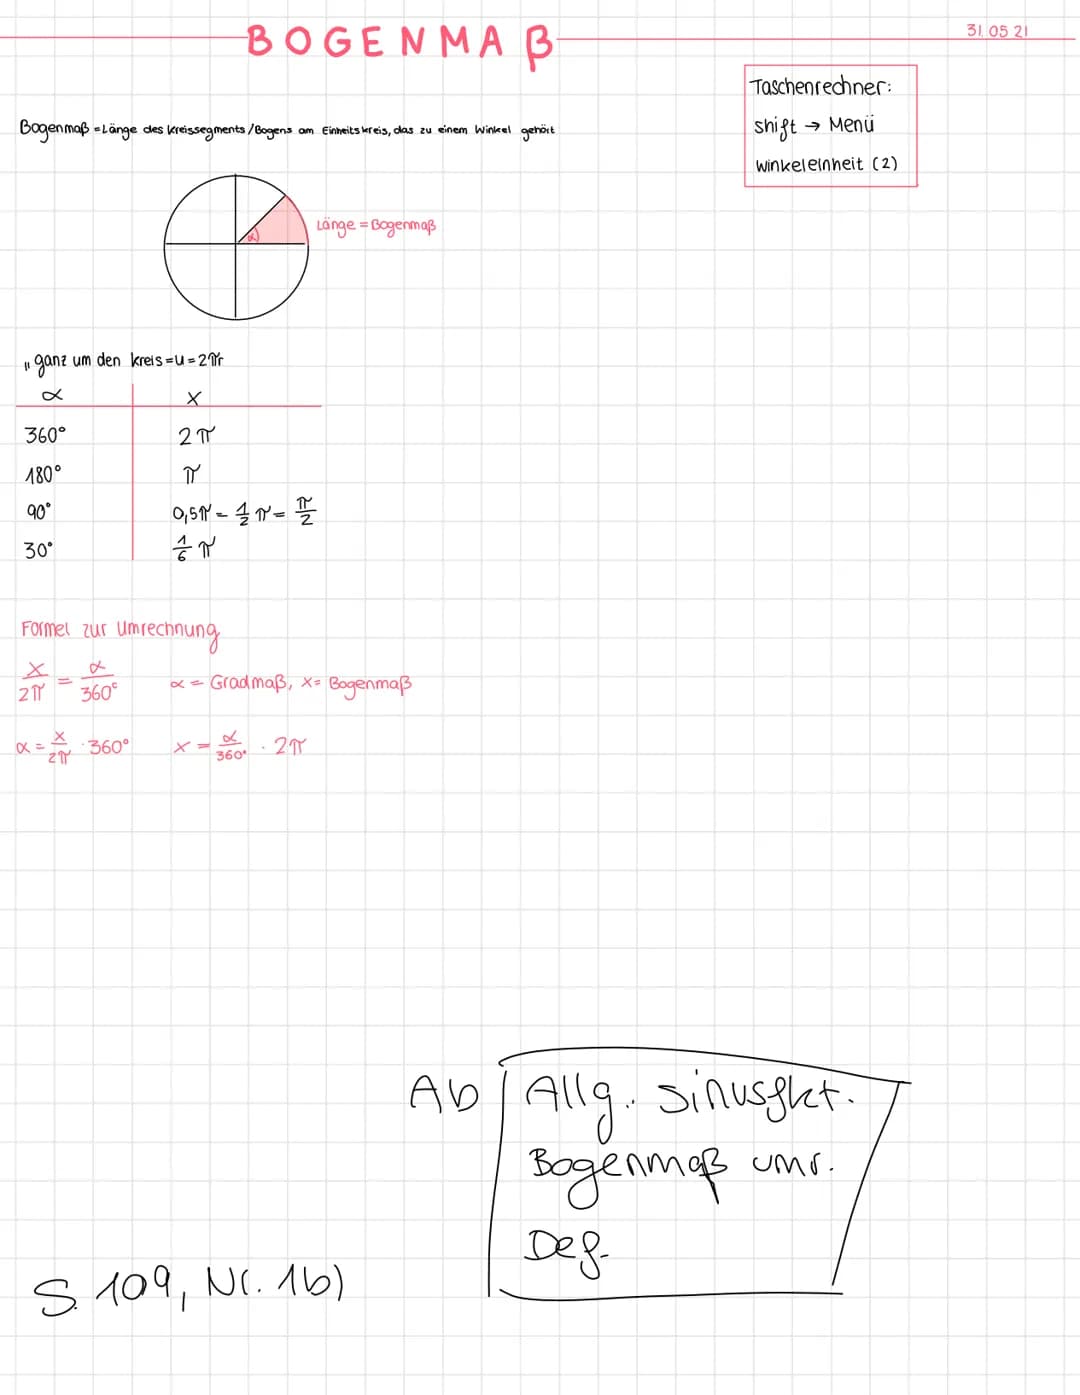 BOGENMAß
31.05.21
Taschenrechner:
shift → Menü
Winkeleinheit (2)
Bogenmaß = Länge des Kreissegments/Bogens am Einheitskreis, das zu einem Winkel gehört
α
Länge = Bogenmaß
"ganz um den Kreis = u = 2πr
α x
360° 2π
180° π
90° 0,5π = 1/2 π = π/2
30° 1/6 π
Formel zur Umrechnung
x/2π = α/360° α = Gradmaß, x = Bogenmaß
α = x/2π · 360° x = α/360° · 2π
Ab Allg. Sinusfkt.
Bogenmaß umr.
Def.
S. 109, Nr. 1b)